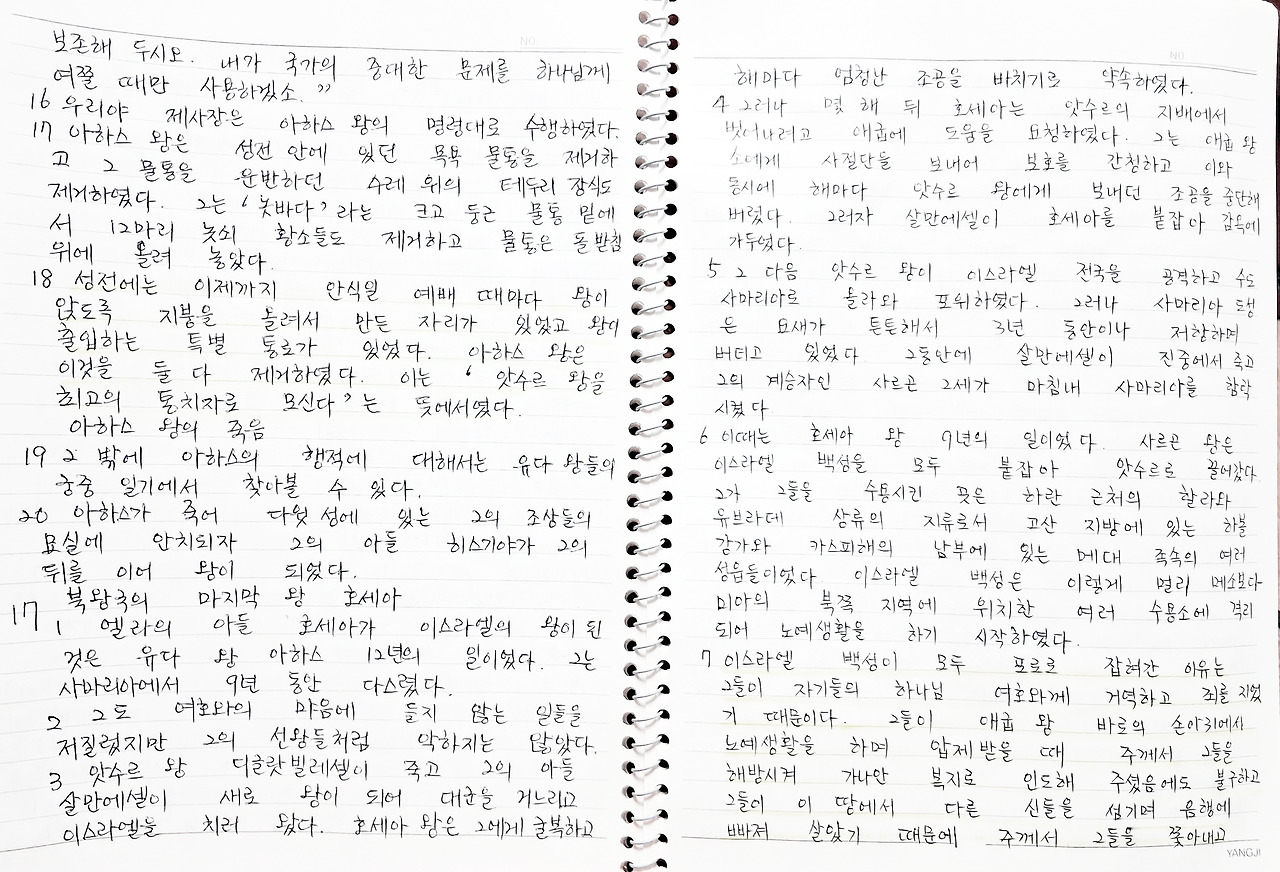 NO
보존해 두시오. 내가 국가의 중대한 문제를 하나님께
여쭐 때만 사용하겠소."
16 우리야 제사장은 아하스 왕의 명령대로 수행하였다.
17 아하스 왕은 성전 안에 있던 목욕 물통을 제거하
고 그 물통을 운반하던 수레 위의 테두리 장식도
제거하였다. 그는 '놋바다'라는 크고 둥근 물통 밑에
서 12마리 놋쇠 황소들도 제거하고 물통은 돌 받침
위에 올려 놓았다.
18 성전에는 이제까지 안식일 예배 때마다 왕이
앉도록 지붕을 올려서 만든 자리가 있었고 왕이
출입하는 특별 통로가 있었다. 아하스 왕은
이것을 둘 다 제거하였다. 이는 '앗수르 왕을
최고의 통치자로 모신다'는 뜻에서였다.
아하스 왕의 죽음
19 그 밖에 아하스의 행적에 대해서는 유다 왕들의
궁중 일기에서 찾아볼 수 있다.
20 아하스가 죽어 다윗 성에 있는 그의 조상들의
묘실에 안치되자 그의 아들 히스기야가 그의
뒤를 이어 왕이 되었다.
17 북왕국의 마지막 왕 호세아
1 엘라의 아들 호세아가 이스라엘의 왕이 된
것은 유다 왕 아하스 12년의 일이었다. 그는
사마리아에서 9년 동안 다스렸다.
2 그도 여호와의 마음에 들지 않는 일들을
저질렀지만 그의 선왕들처럼 악하지는 않았다.
3 앗수르 왕 디글랏빌레셀이 죽고 그의 아들
살만에셀이 새로 왕이 되어 대군을 거느리고
이스라엘을 치러 왔다. 호세아 왕은 그에게 굴복하고
NO
해마다 엄청난 조공을 바치기로 약속하였다.
4 그러나 몇 해 뒤 호세아는 앗수르의 지배에서
벗어나려고 애굽에 도움을 요청하였다. 그는 애굽 왕
소에게 사절단을 보내어 보호를 간청하고 이와
동시에 해마다 앗수르 왕에게 보내던 조공을 중단해
버렸다. 그러자 살만에셀이 호세아를 붙잡아 감옥에
가두었다.
5 그 다음 앗수르 왕이 이스라엘 전국을 공격하고 수도
사마리아로 올라와 포위하였다. 그러나 사마리아 도성
은 요새가 튼튼해서 3년 동안이나 저항하며
버티고 있었다 그동안에 살만에셀이 진중에서 죽고
그의 계승자인 사르곤 2세가 마침내 사마리아를 함락
시켰다
6 이때는 호세아 왕 9년의 일이었다. 사르곤 왕은
이스라엘 백성을 모두 붙잡아 앗수르로 끌어갔다
그가 그들을 수용시킨 곳은 하란 근처의 할라와
유브라데 상류의 지류로서 고산 지방에 있는 하볼
강가와 카스피해의 남부에 있는 메대 족속의 여러
성읍들이었다 이스라엘 백성은 이렇게 멀리 메소보다
미아의 북쪽 지역에 위치한 여러 수용소에 격리
되어 노예생활을 하기 시작하였다.
7 이스라엘 백성이 모두 포로로 잡혀간 이유는
그들이 자기들의 하나님 여호와께 거역하고 죄를 지었
기 때문이다. 그들이 애굽 왕 바로의 손아귀에서
노예생활을 하며 압제받을 때 주께서 그들을
해방시켜 가나안 복지로 인도해 주셨음에도 불구하고
그들이 이 땅에서 다른 신들을 섬기며 음행에
빠져 살았기 때문에 주께서 그들을 쫓아내고
YANGJI